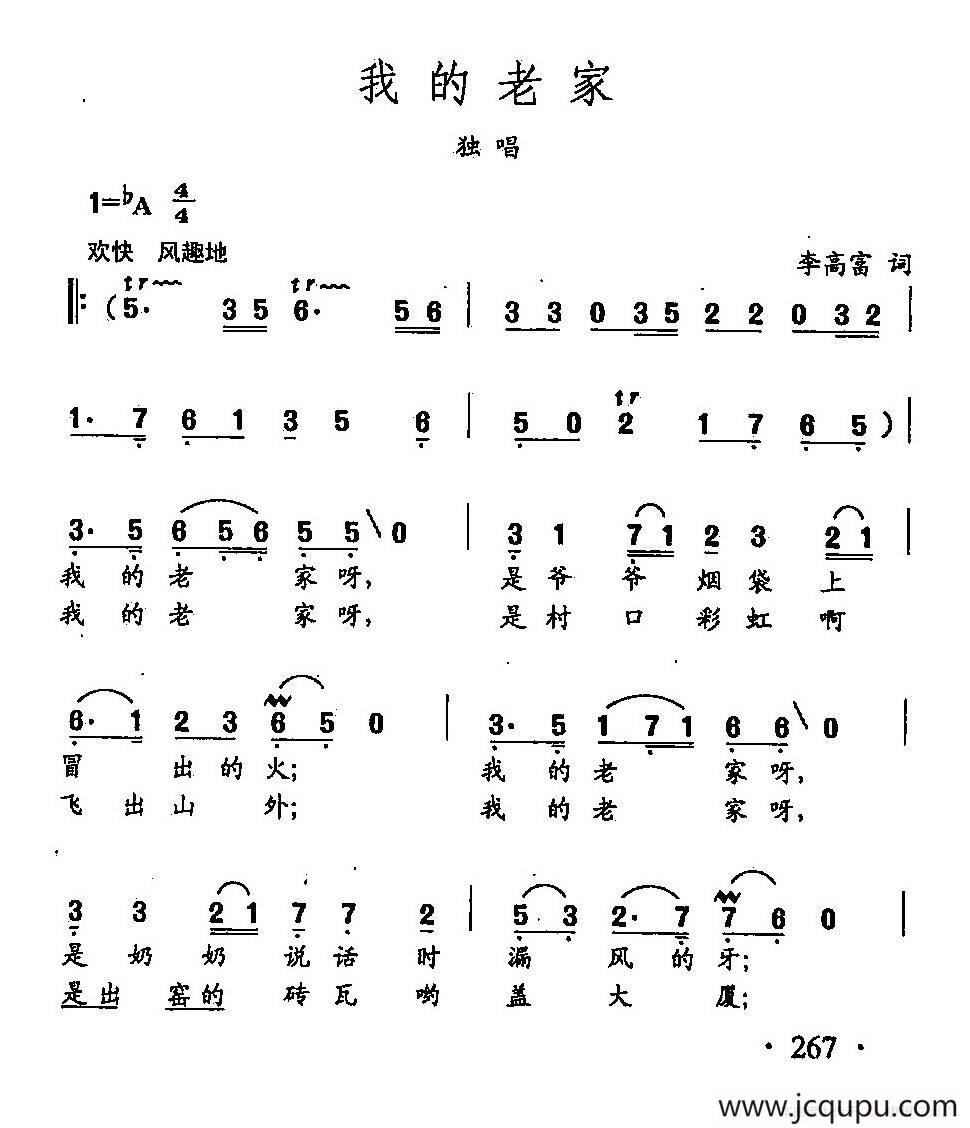 我的老家
独唱
1=♭A 4/4
欢快 风趣地
李高富 词
tr tr
‖: (5· 3 5 6· 5 6 | 3 3 0 3 5 2 2 0 3 2 |
tr
1· 7 6 1 3 5 6 | 5 0 2 1 7 6 5) |
3· 5 6 5 6 5 5 0 | 3 1 7 1 2 3 2 1 |
我的老家呀, 是爷爷烟袋上
我的老家呀, 是村口彩虹啊
6· 1 2 3 6 5 0 | 3· 5 1 7 1 6 6 0 |
冒出的火; 我的老家呀,
飞出山外; 我的老家呀,
3 3 2 1 7 7 2 | 5 3 2· 7 7 6 0 |
是奶奶说话时漏风的牙;
是出窑的砖瓦哟盖大厦;
· 267 ·
www.jcqupu.com